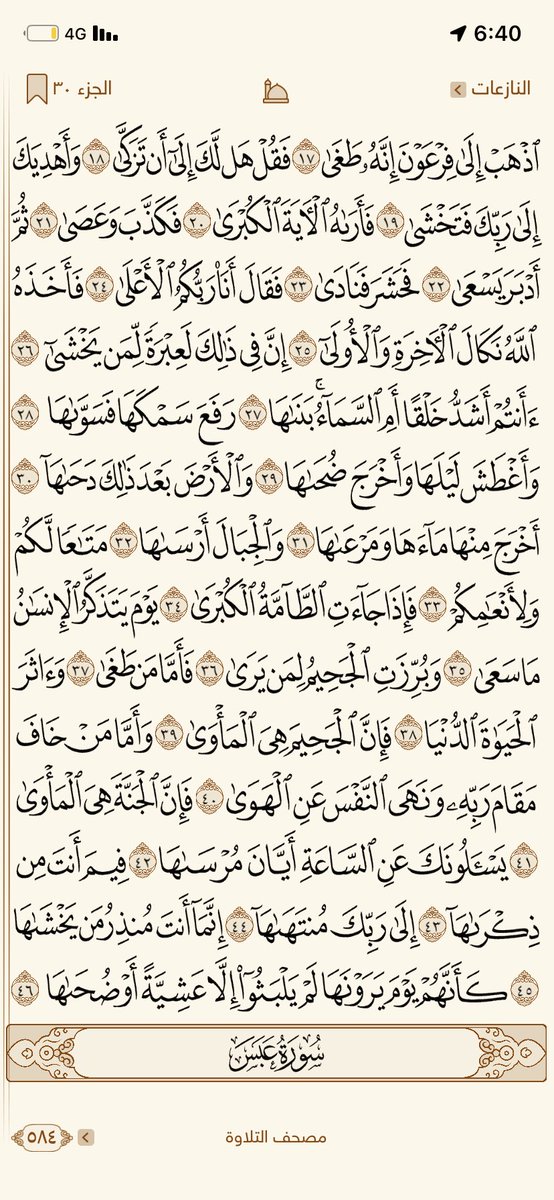 4G 6:40
النازعات الجزء ٣٠
ٱذۡهَبۡ إِلَىٰ فِرۡعَوۡنَ إِنَّهُۥ طَغَىٰ ١٧ فَقُلۡ هَل لَّكَ إِلَىٰٓ أَن تَزَكَّىٰ ١٨ وَأَهۡدِيَكَ
إِلَىٰ رَبِّكَ فَتَخۡشَىٰ ١٩ فَأَرَىٰهُ ٱلۡأٓيَةَ ٱلۡكُبۡرَىٰ ٢٠ فَكَذَّبَ وَعَصَىٰ ٢١ ثُمَّ
أَدۡبَرَ يَسۡعَىٰ ٢٢ فَحَشَرَ فَنَادَىٰ ٢٣ فَقَالَ أَنَا۠ رَبُّكُمُ ٱلۡأَعۡلَىٰ ٢٤ فَأَخَذَهُ
ٱللَّهُ نَكَالَ ٱلۡأٓخِرَةِ وَٱلۡأُولَىٰٓ ٢٥ إِنَّ فِي ذَٰلِكَ لَعِبۡرَةٗ لِّمَن يَخۡشَىٰٓ ٢٦
ءَأَنتُمۡ أَشَدُّ خَلۡقًا أَمِ ٱلسَّمَآءُۚ بَنَىٰهَا ٢٧ رَفَعَ سَمۡكَهَا فَسَوَّىٰهَا ٢٨
وَأَغۡطَشَ لَيۡلَهَا وَأَخۡرَجَ ضُحَىٰهَا ٢٩ وَٱلۡأَرۡضَ بَعۡدَ ذَٰلِكَ دَحَىٰهَآ ٣٠
أَخۡرَجَ مِنۡهَا مَآءَهَا وَمَرۡعَىٰهَا ٣١ وَٱلۡجِبَالَ أَرۡسَىٰهَا ٣٢ مَتَٰعٗا لَّكُمۡ
وَلِأَنۡعَٰمِكُمۡ ٣٣ فَإِذَا جَآءَتِ ٱلطَّآمَّةُ ٱلۡكُبۡرَىٰ ٣٤ يَوۡمَ يَتَذَكَّرُ ٱلۡإِنسَٰنُ
مَا سَعَىٰ ٣٥ وَبُرِّزَتِ ٱلۡجَحِيمُ لِمَن يَرَىٰ ٣٦ فَأَمَّا مَن طَغَىٰ ٣٧ وَءَاثَرَ
ٱلۡحَيَوٰةَ ٱلدُّنۡيَا ٣٨ فَإِنَّ ٱلۡجَحِيمَ هِيَ ٱلۡمَأۡوَىٰ ٣٩ وَأَمَّا مَنۡ خَافَ
مَقَامَ رَبِّهِۦ وَنَهَى ٱلنَّفۡسَ عَنِ ٱلۡهَوَىٰ ٤٠ فَإِنَّ ٱلۡجَنَّةَ هِيَ ٱلۡمَأۡوَىٰ
٤١ يَسۡـَٔلُونَكَ عَنِ ٱلسَّاعَةِ أَيَّانَ مُرۡسَىٰهَا ٤٢ فِيمَ أَنتَ مِن
ذِكۡرَىٰهَآ ٤٣ إِلَىٰ رَبِّكَ مُنتَهَىٰهَآ ٤٤ إِنَّمَآ أَنتَ مُنذِرُ مَن يَخۡشَىٰهَا
٤٥ كَأَنَّهُمۡ يَوۡمَ يَرَوۡنَهَا لَمۡ يَلۡبَثُوٓاْ إِلَّا عَشِيَّةً أَوۡ ضُحَىٰهَا ٤٦
سُورَةُ عَبَسَ
مصحف التلاوة ٥٨٤